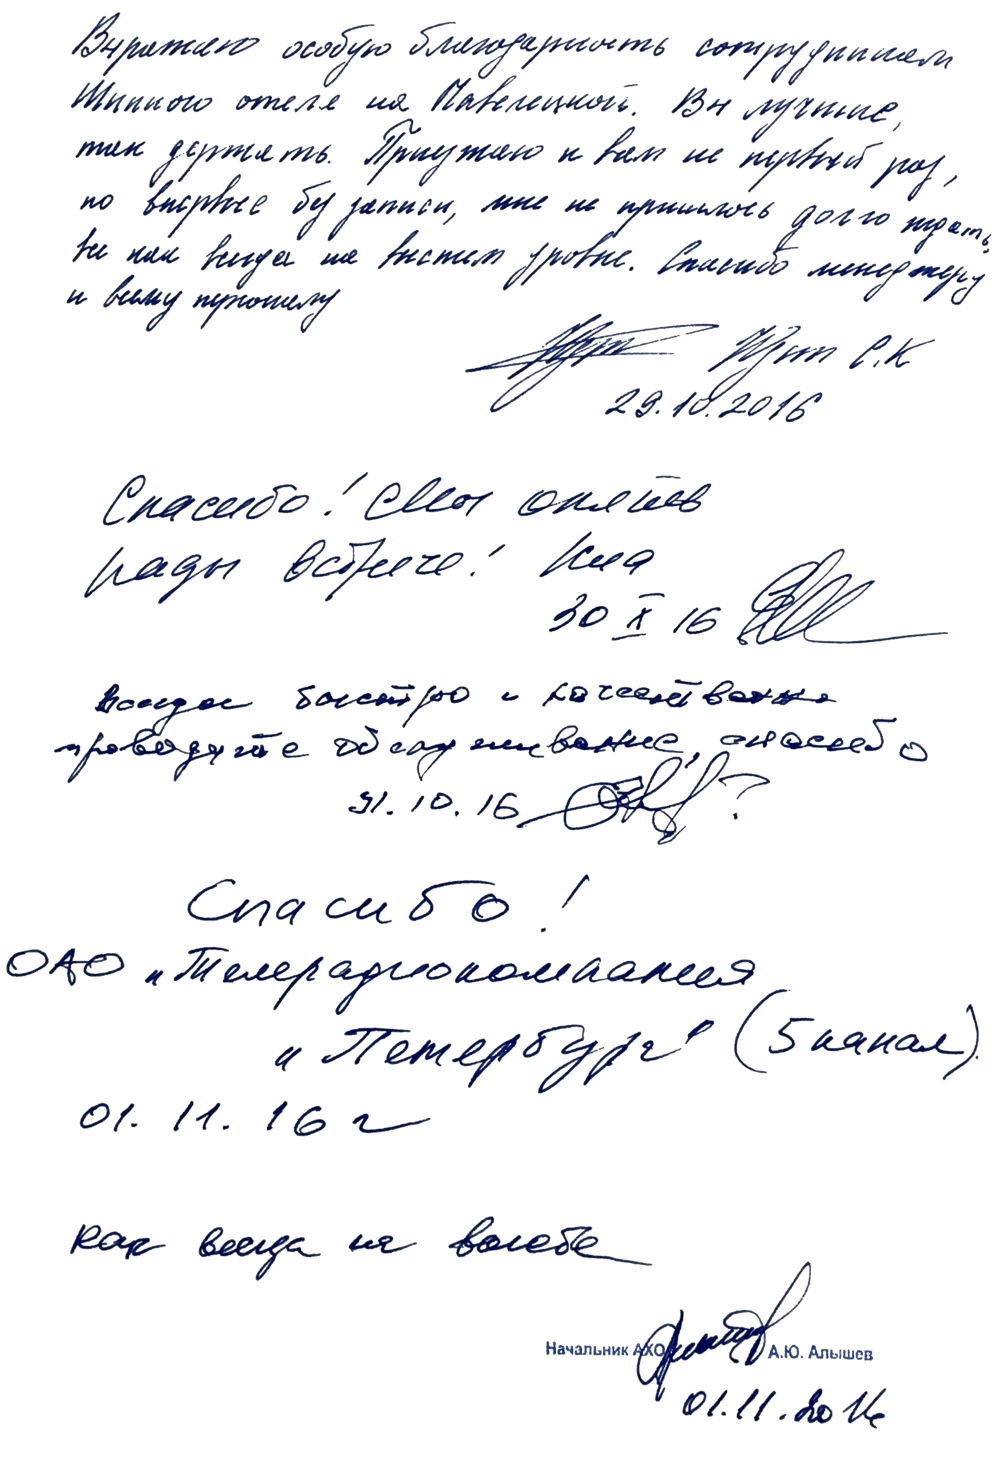 Выражаю особую благодарность сотрудникам
Шинного отеля на Павелецкой. Вы лучшие,
так держать. Приезжаю к вам не первый раз,
но впервые без записи, мне не пришлось долго ждать,
все как всегда на высшем уровне. Спасибо менеджеру
и всему персоналу
С.К
29.10.2016
Спасибо! Мы опять
рады встрече! Киа
30 X 16
Всегда быстро и качественно
проводите обслуживание, спасибо
31.10.16
Спасибо!
ОАО "Телерадиокомпания
"Петербург" (5 канал).
01.11.16 г
Как всегда на высоте
Начальник АХО А.Ю. Алышев
01.11.2016